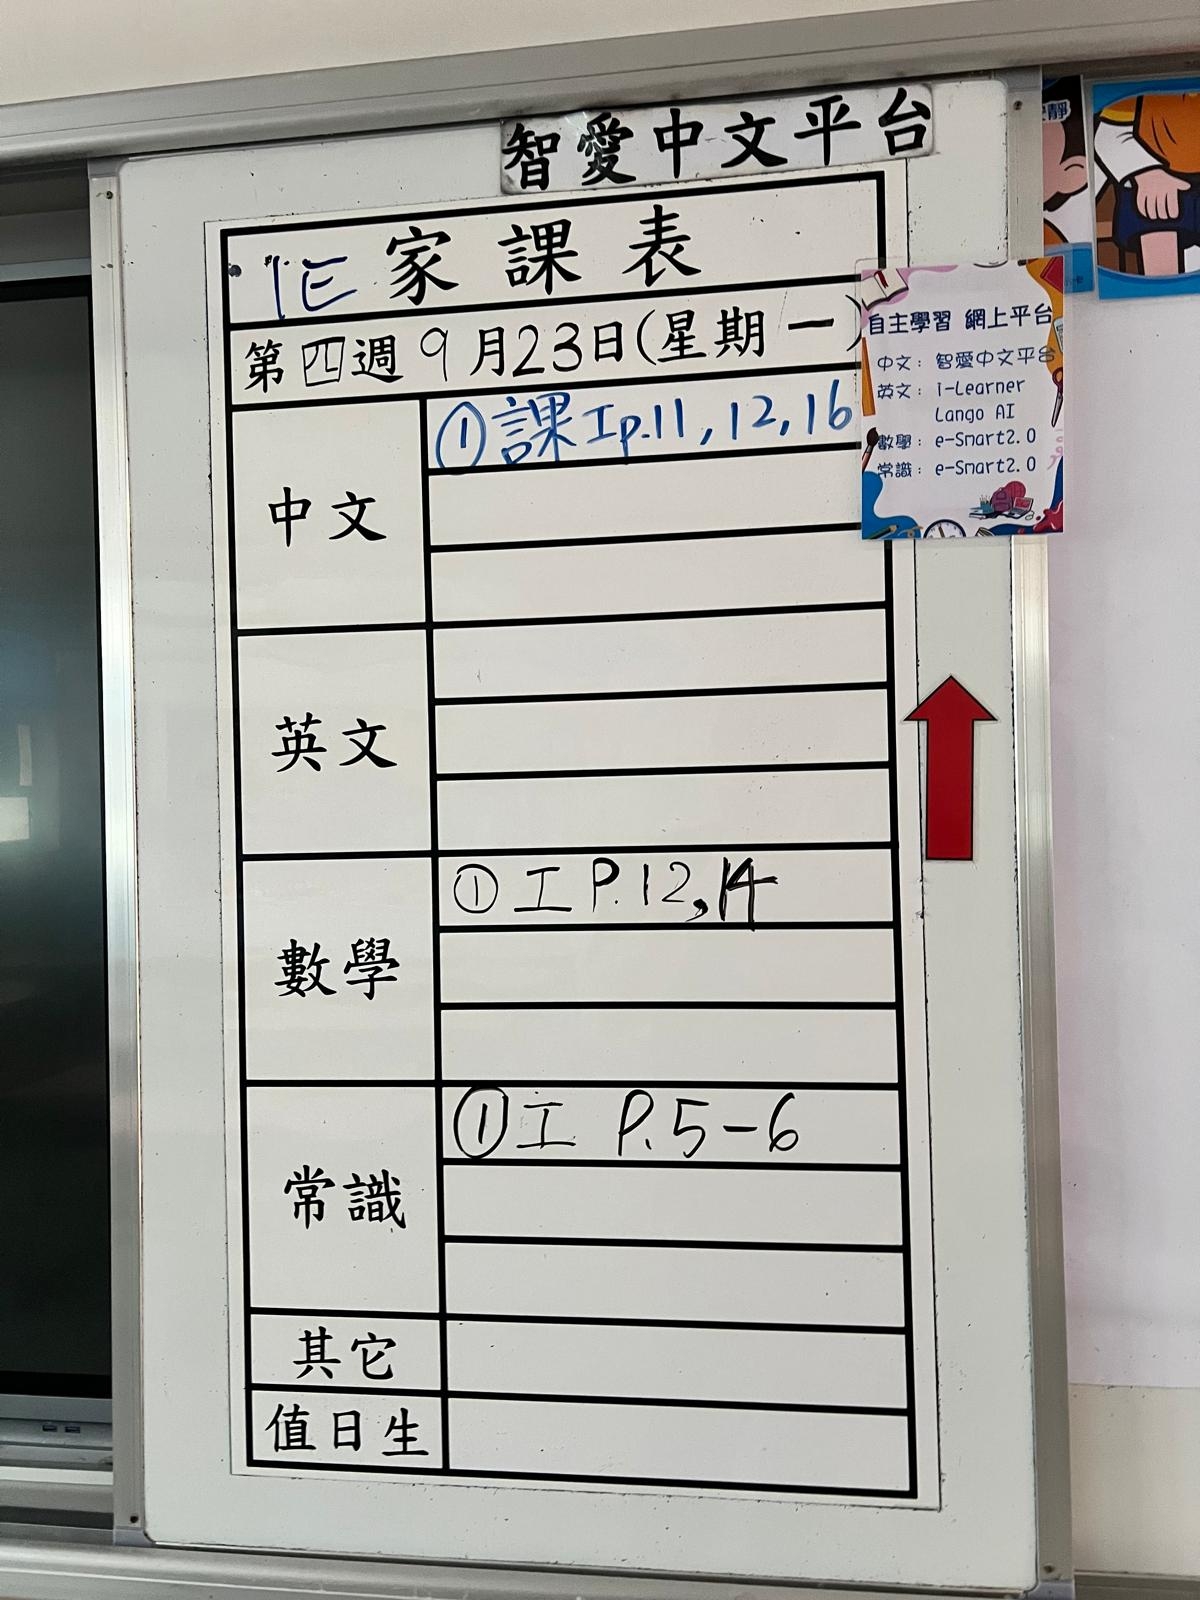 智愛中文平台
1E 家課表
第四週9月23日(星期一)
中文
①課工p.11,12,16
英文
數學
①工P.12,14
常識
①工 P.5-6
其它
值日生
自主學習 網上平台
中文：智愛中文平台
英文：i-Learner
Lango AI
數學：e-Smart2.0
常識：e-Smart2.0
靜